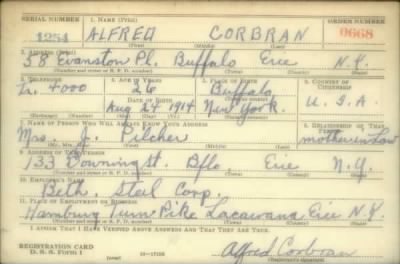 SERIAL NUMBER 1. NAME (Print) ORDER NUMBER
1254 ALFRED CORBRAN 0668
(First) (Middle) (Last)
2. ADDRESS (Print)
58 Evanston Pl. Buffalo Erie N.Y.
(Number and street or R. F. D. number) (Town) (County) (State)
3. TELEPHONE 4. AGE IN YEARS 5. PLACE OF BIRTH 6. COUNTRY OF CITIZENSHIP
4000 26 Buffalo
DATE OF BIRTH
Aug 27 1914 New York. U.S.A.
(Exchange) (Number) (Mo.) (Day) (Yr.) (State or country)
7. NAME OF PERSON WHO WILL ALWAYS KNOW YOUR ADDRESS 8. RELATIONSHIP OF THAT PERSON
Mrs. J. Pilcher mother in law
(Mr., Mrs., Miss) (First) (Middle) (Last)
9. ADDRESS OF THAT PERSON
133 Downing St. Bflo Erie N.Y.
(Number and street or R. F. D. number) (Town) (County) (State)
10. EMPLOYER'S NAME
Beth. Steel Corp.
11. PLACE OF EMPLOYMENT OR BUSINESS
Hamburg Turn Pike Lacawana Erie N.Y.
(Number and street or R. F. D. number) (Town) (County) (State)
I AFFIRM THAT I HAVE VERIFIED ABOVE ANSWERS AND THAT THEY ARE TRUE.
REGISTRATION CARD
D. S. S. Form 1 (over) Alfred Corbran
(Registrant's signature)